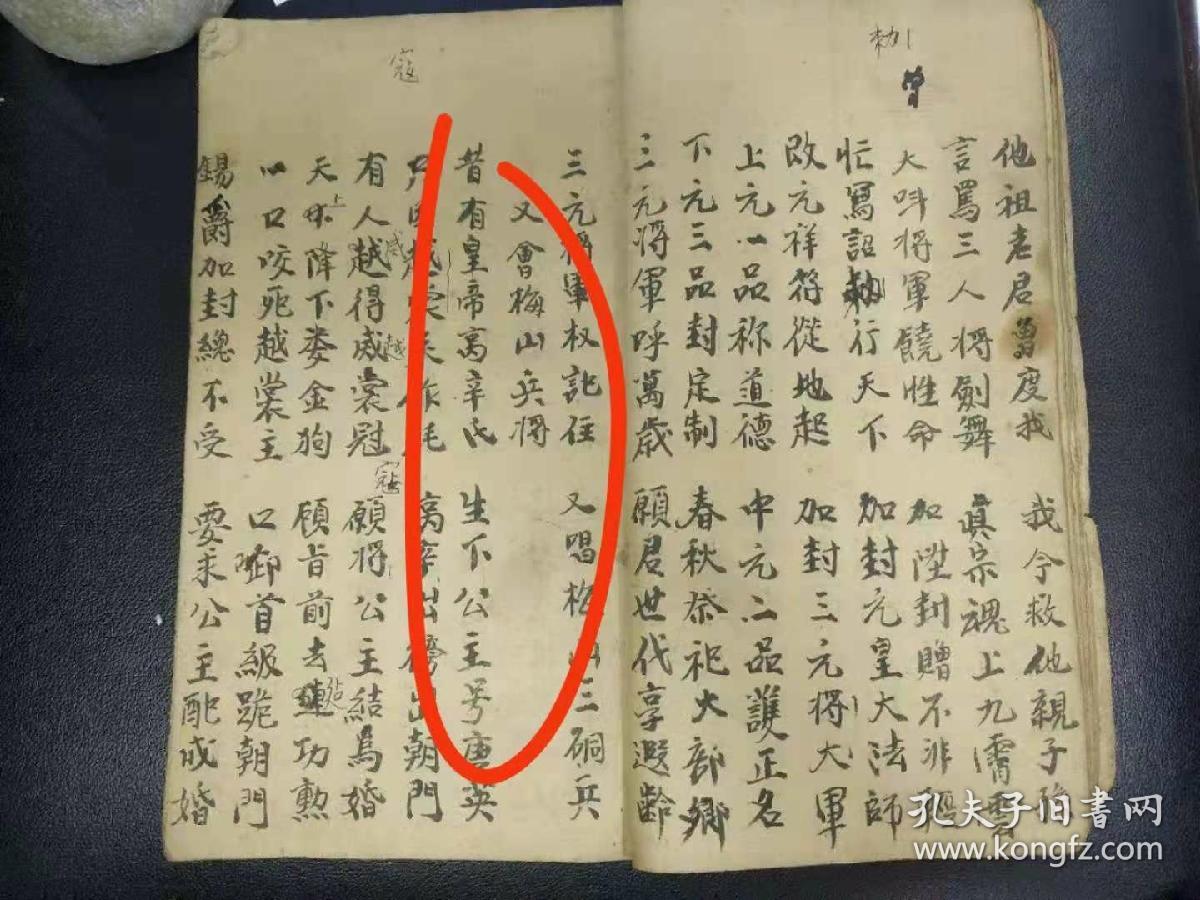 勑
他祖老君曾度我 我今救他親子孫
言罵三人將劍舞 真宗魂上九霄雲
大呌將軍饒性命 加陞封贈不非輕
忙寫詔勑行天下 加封元皇大法師
改元祥符從地起 加封三元將大軍
上元一品称道德 中元二品護正名
下元三品封定制 春秋祭祀大部鄉
三元將軍呼萬歲 願君世代享遐齡
寇
三元將軍权訨任 又唱梅山三硐兵
又會梅山兵將
昔有皇帝高辛氏 生下公主号唐英
高辛出榜出朝門
有人越得威裳慰 願將公主結為婚
天上降下娄金狗 領旨前去建功勲
一口咬死越裳主 口啣首級跪朝門
錫爵加封總不受 要求公主配成婚
孔夫子旧书网
www.kongfz.com